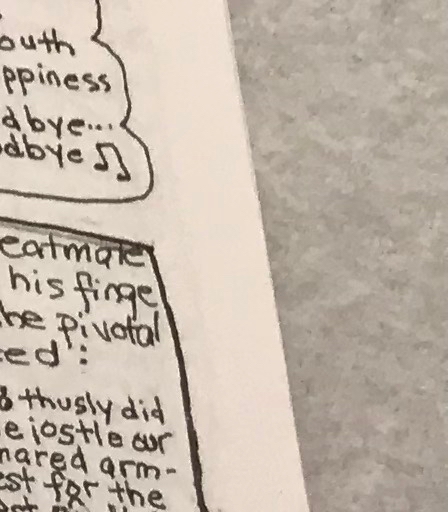 outh
ppiness
dbye...
odbye ♫
eatmate
his finge
he pivotal
ced :
& thusly did
e jostle our
hared arm-
est for the